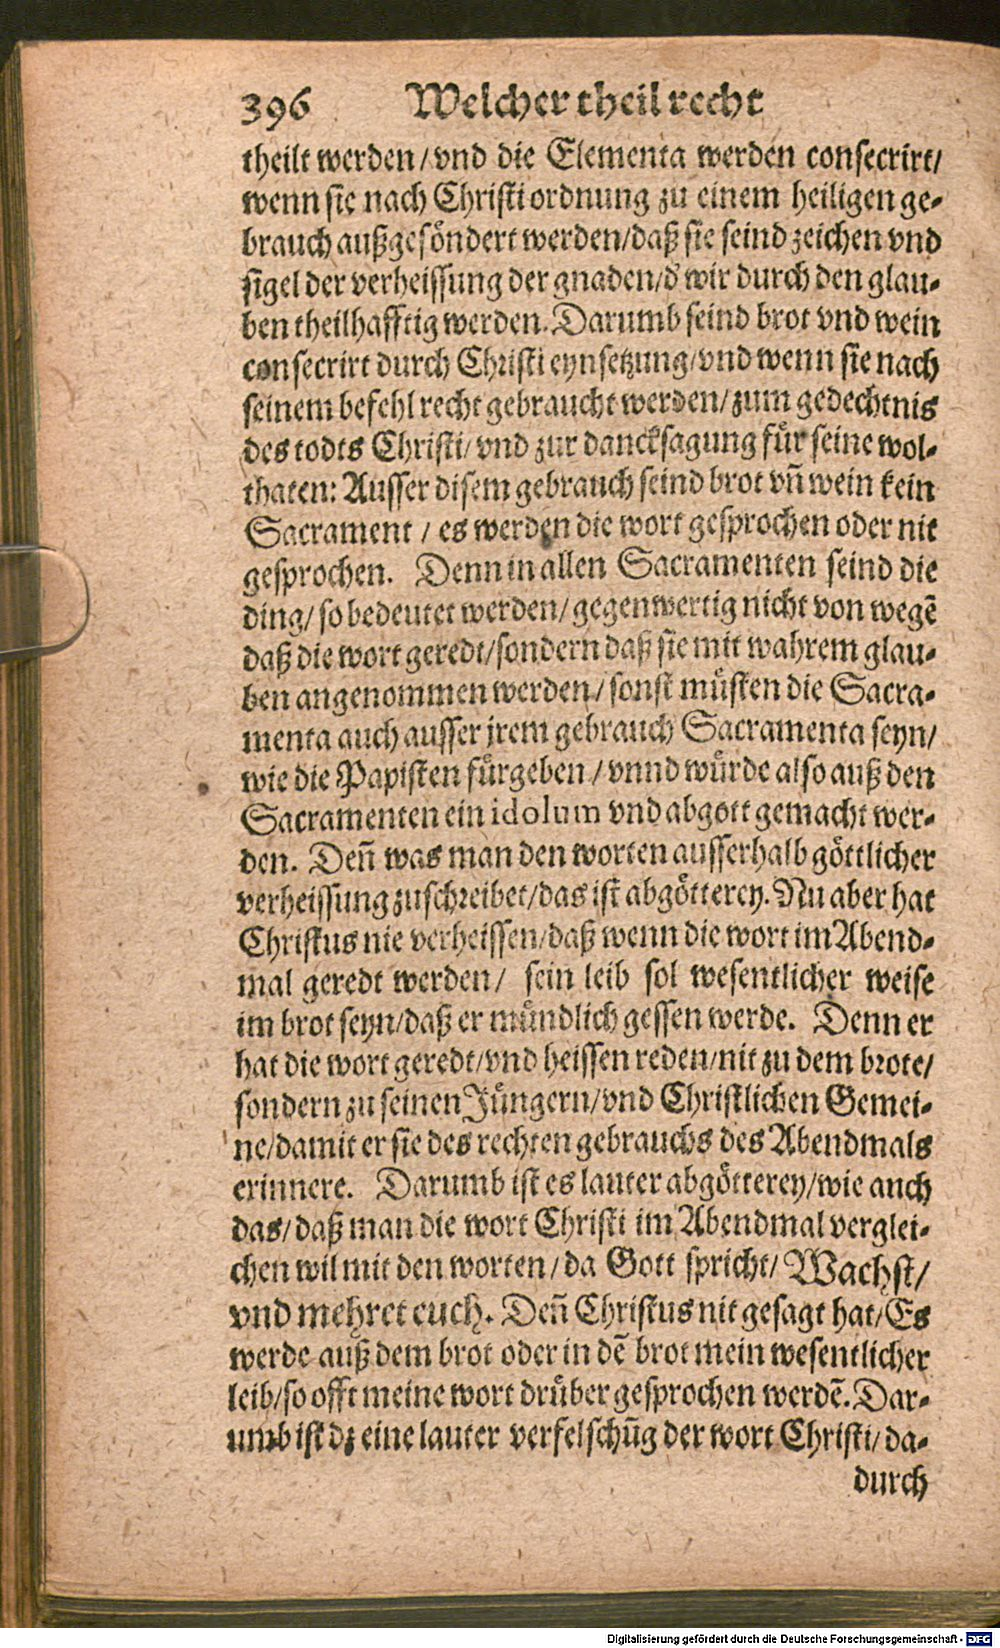 396 Welcher theil recht
theilt werden/ vnd die Elementa werden consecrirt/
wenn sie nach Christi ordnung zu einem heiligen ge-
brauch außgesöndert werden/ daß sie seind zeichen vnd
sigel der verheissung der gnaden/ d' wir durch den glau-
ben theilhafftig werden. Darumb seind brot vnd wein
consecrirt durch Christi eynsetzung/ vnd wenn sie nach
seinem befehl recht gebraucht werden/ zum gedechtnis
des todts Christi/ vnd zur dancksagung für seine wol-
thaten: Ausser disem gebrauch seind brot vn̄ wein kein
Sacrament / es werden die wort gesprochen oder nit
gesprochen. Denn in allen Sacramenten seind die
ding/ so bedeutet werden/ gegenwertig nicht von wegē
daß die wort geredt/ sondern daß sie mit wahrem glau-
ben angenommen werden/ sonst müsten die Sacra-
menta auch ausser jrem gebrauch Sacramenta seyn/
wie die Papisten fürgeben / vnnd würde also auß den
Sacramenten ein idolum vnd abgott gemacht wer-
den. Den̄ was man den worten ausserhalb göttlicher
verheissung zuschreibet/ das ist abgötterey. Nu aber hat
Christus nie verheissen/ daß wenn die wort im Abend-
mal geredt werden/ sein leib sol wesentlicher weise
im brot seyn/ daß er mündlich gessen werde. Denn er
hat die wort geredt/ vnd heissen reden/ nit zu dem brote/
sondern zu seinen Jüngern/ vnd Christlichen Gemei-
ne/ damit er sie des rechten gebrauchs des Abendmals
erinnere. Darumb ist es lauter abgötterey/ wie auch
das/ daß man die wort Christi im Abendmal verglei-
chen wil mit den worten/ da Gott spricht/ Wachst/
vnd mehret euch. Den̄ Christus nit gesagt hat/ Es
werde auß dem brot oder in dē brot mein wesentlicher
leib/ so offt meine wort drüber gesprochen werdē. Dar-
umb ist dz eine lauter verfelschūg der wort Christi/ da-
durch
Digitalisierung gefördert durch die Deutsche Forschungsgemeinschaft - DFG